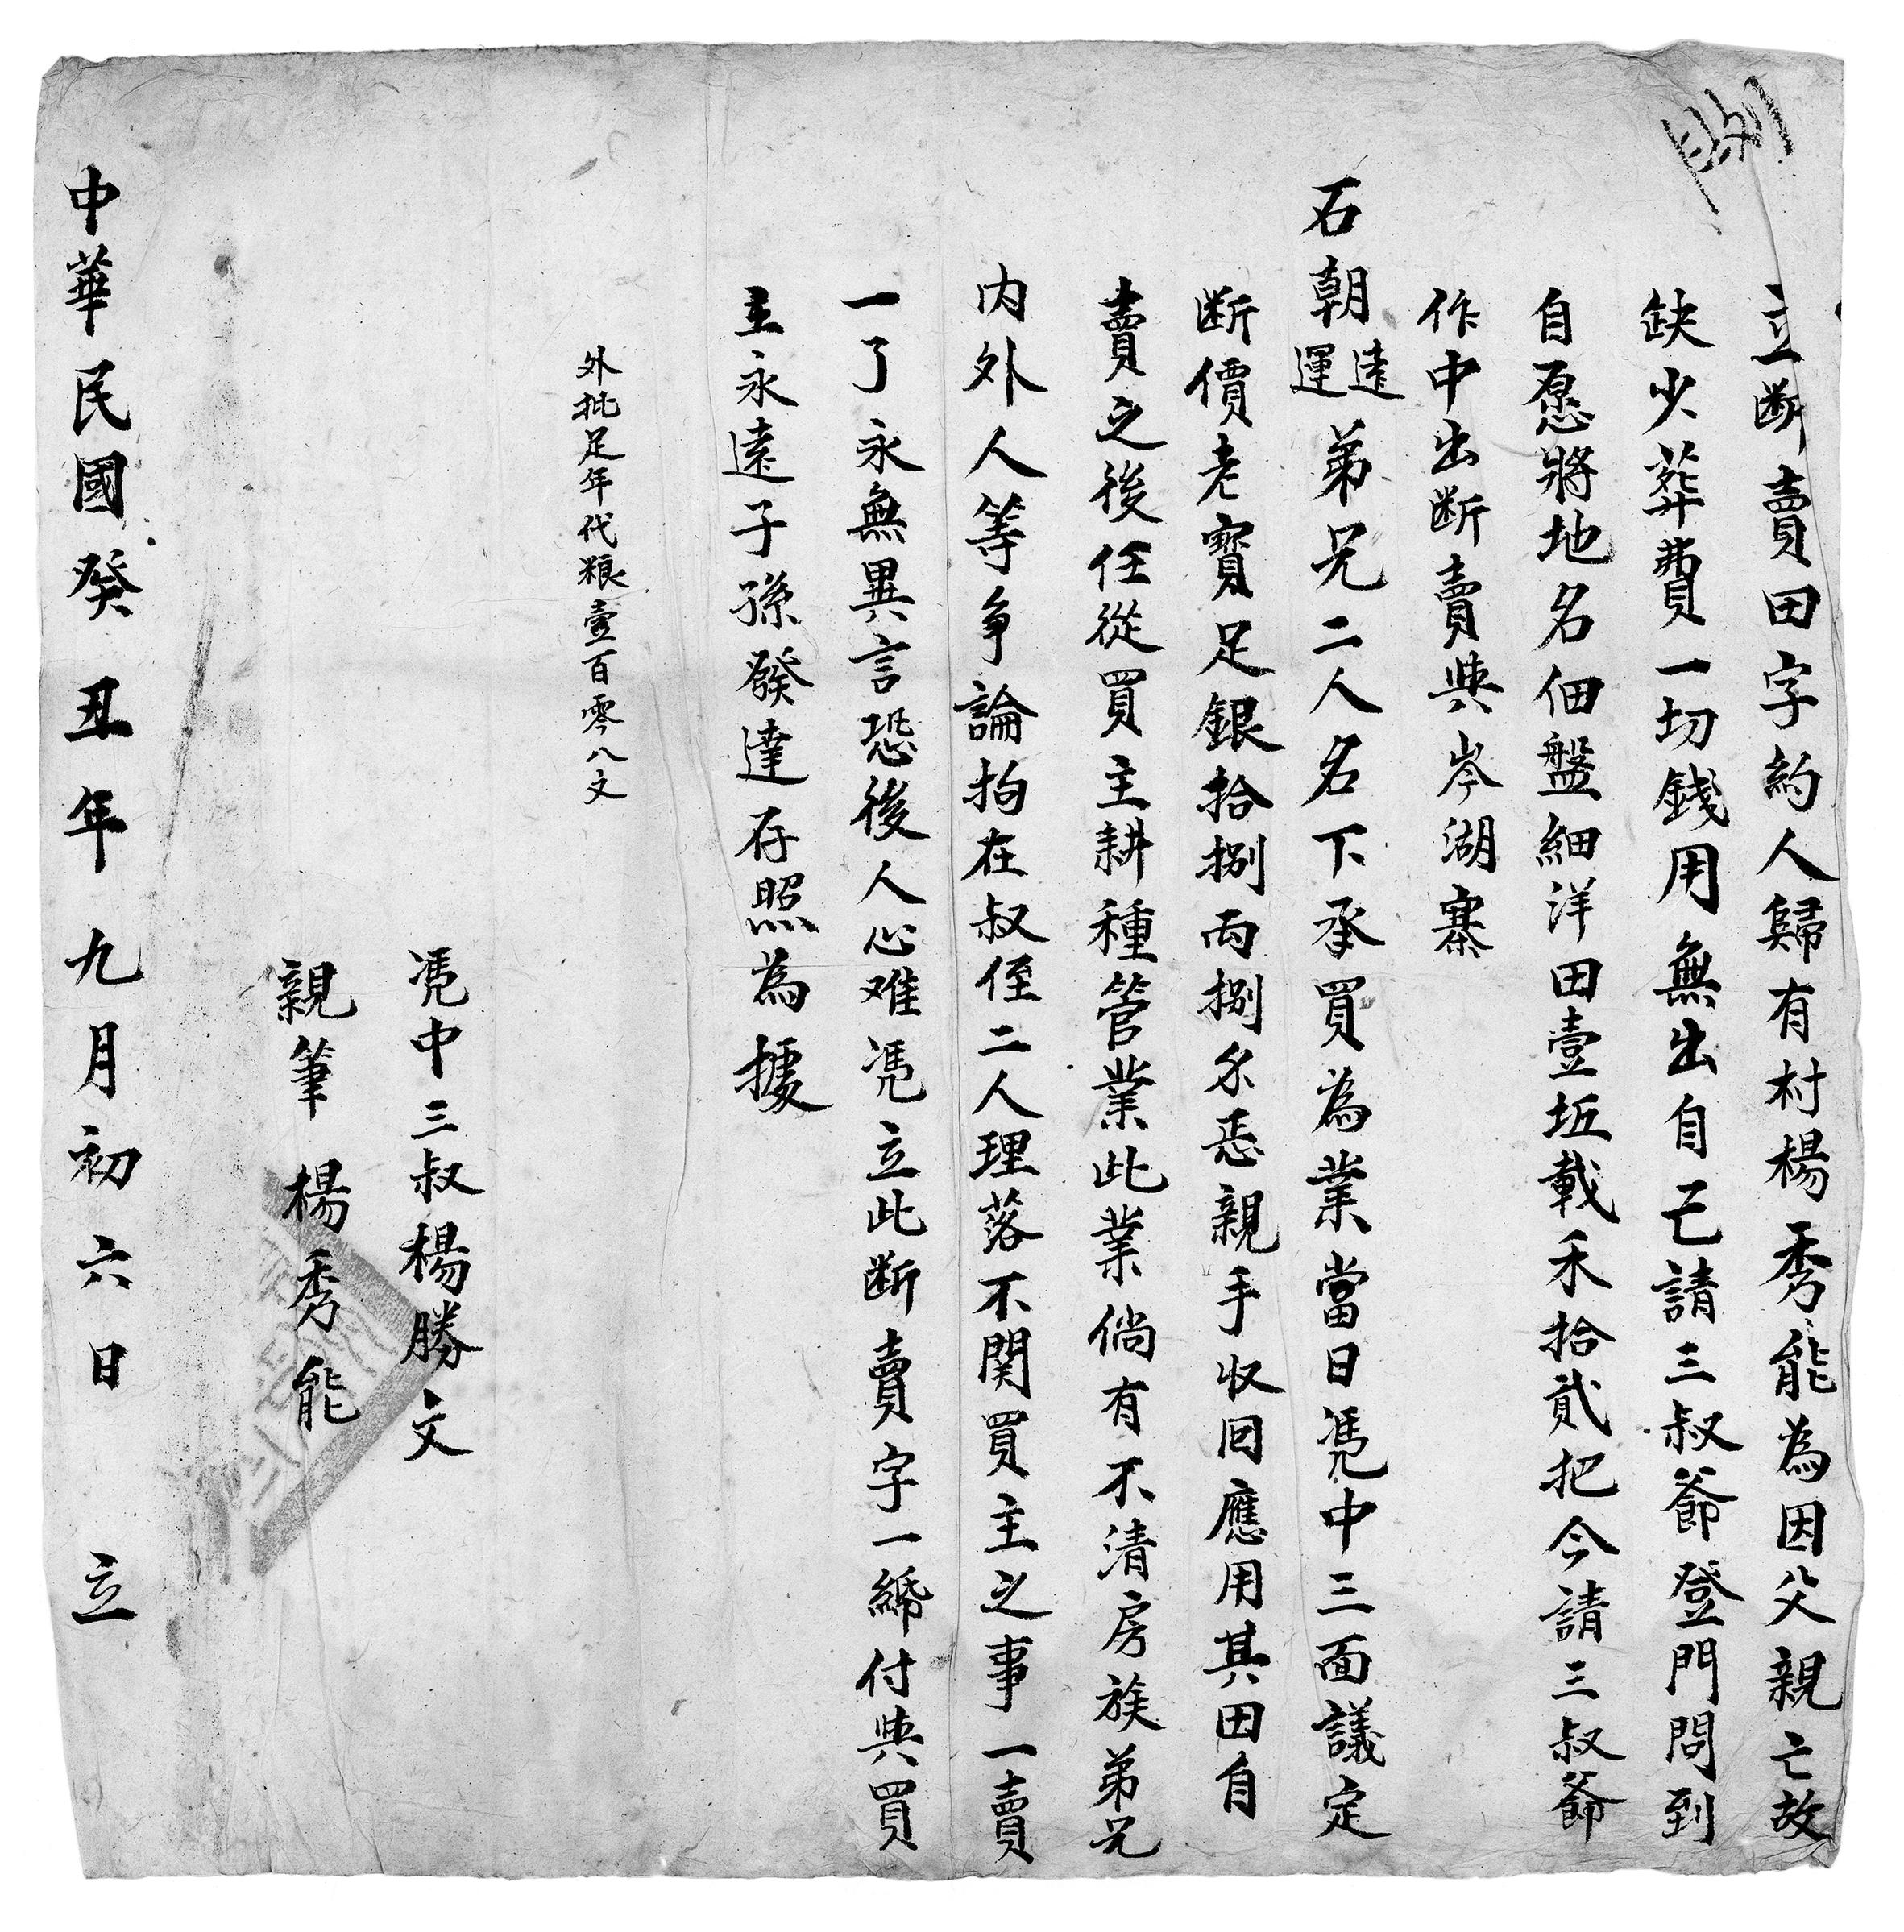 立断賣田字約人歸有村楊秀能為因父親亡故
缺少葬費一切錢用無出自己請三叔爺登門問到
自愿將地名佃盤細洋田壹坵載禾拾貳把今請三叔爺
作中出断賣與岑湖寨
石朝遠運弟兄二人名下承買為業當日凴中三面議定
断價老寳足銀拾捌両捌尔悉親手収回應用其田自
賣之後任從買主耕種管業此業倘有不清房族弟兄
内外人等争論拍在叔侄二人理落不関買主之事一賣
一了永無異言恐後人心难凴立此断賣字一紙付與買
主永遠子孫發達存照為據
外批足年代粮壹百零八文
凴中三叔楊勝文
親筆楊秀能
中華民國癸丑年九月初六日 立